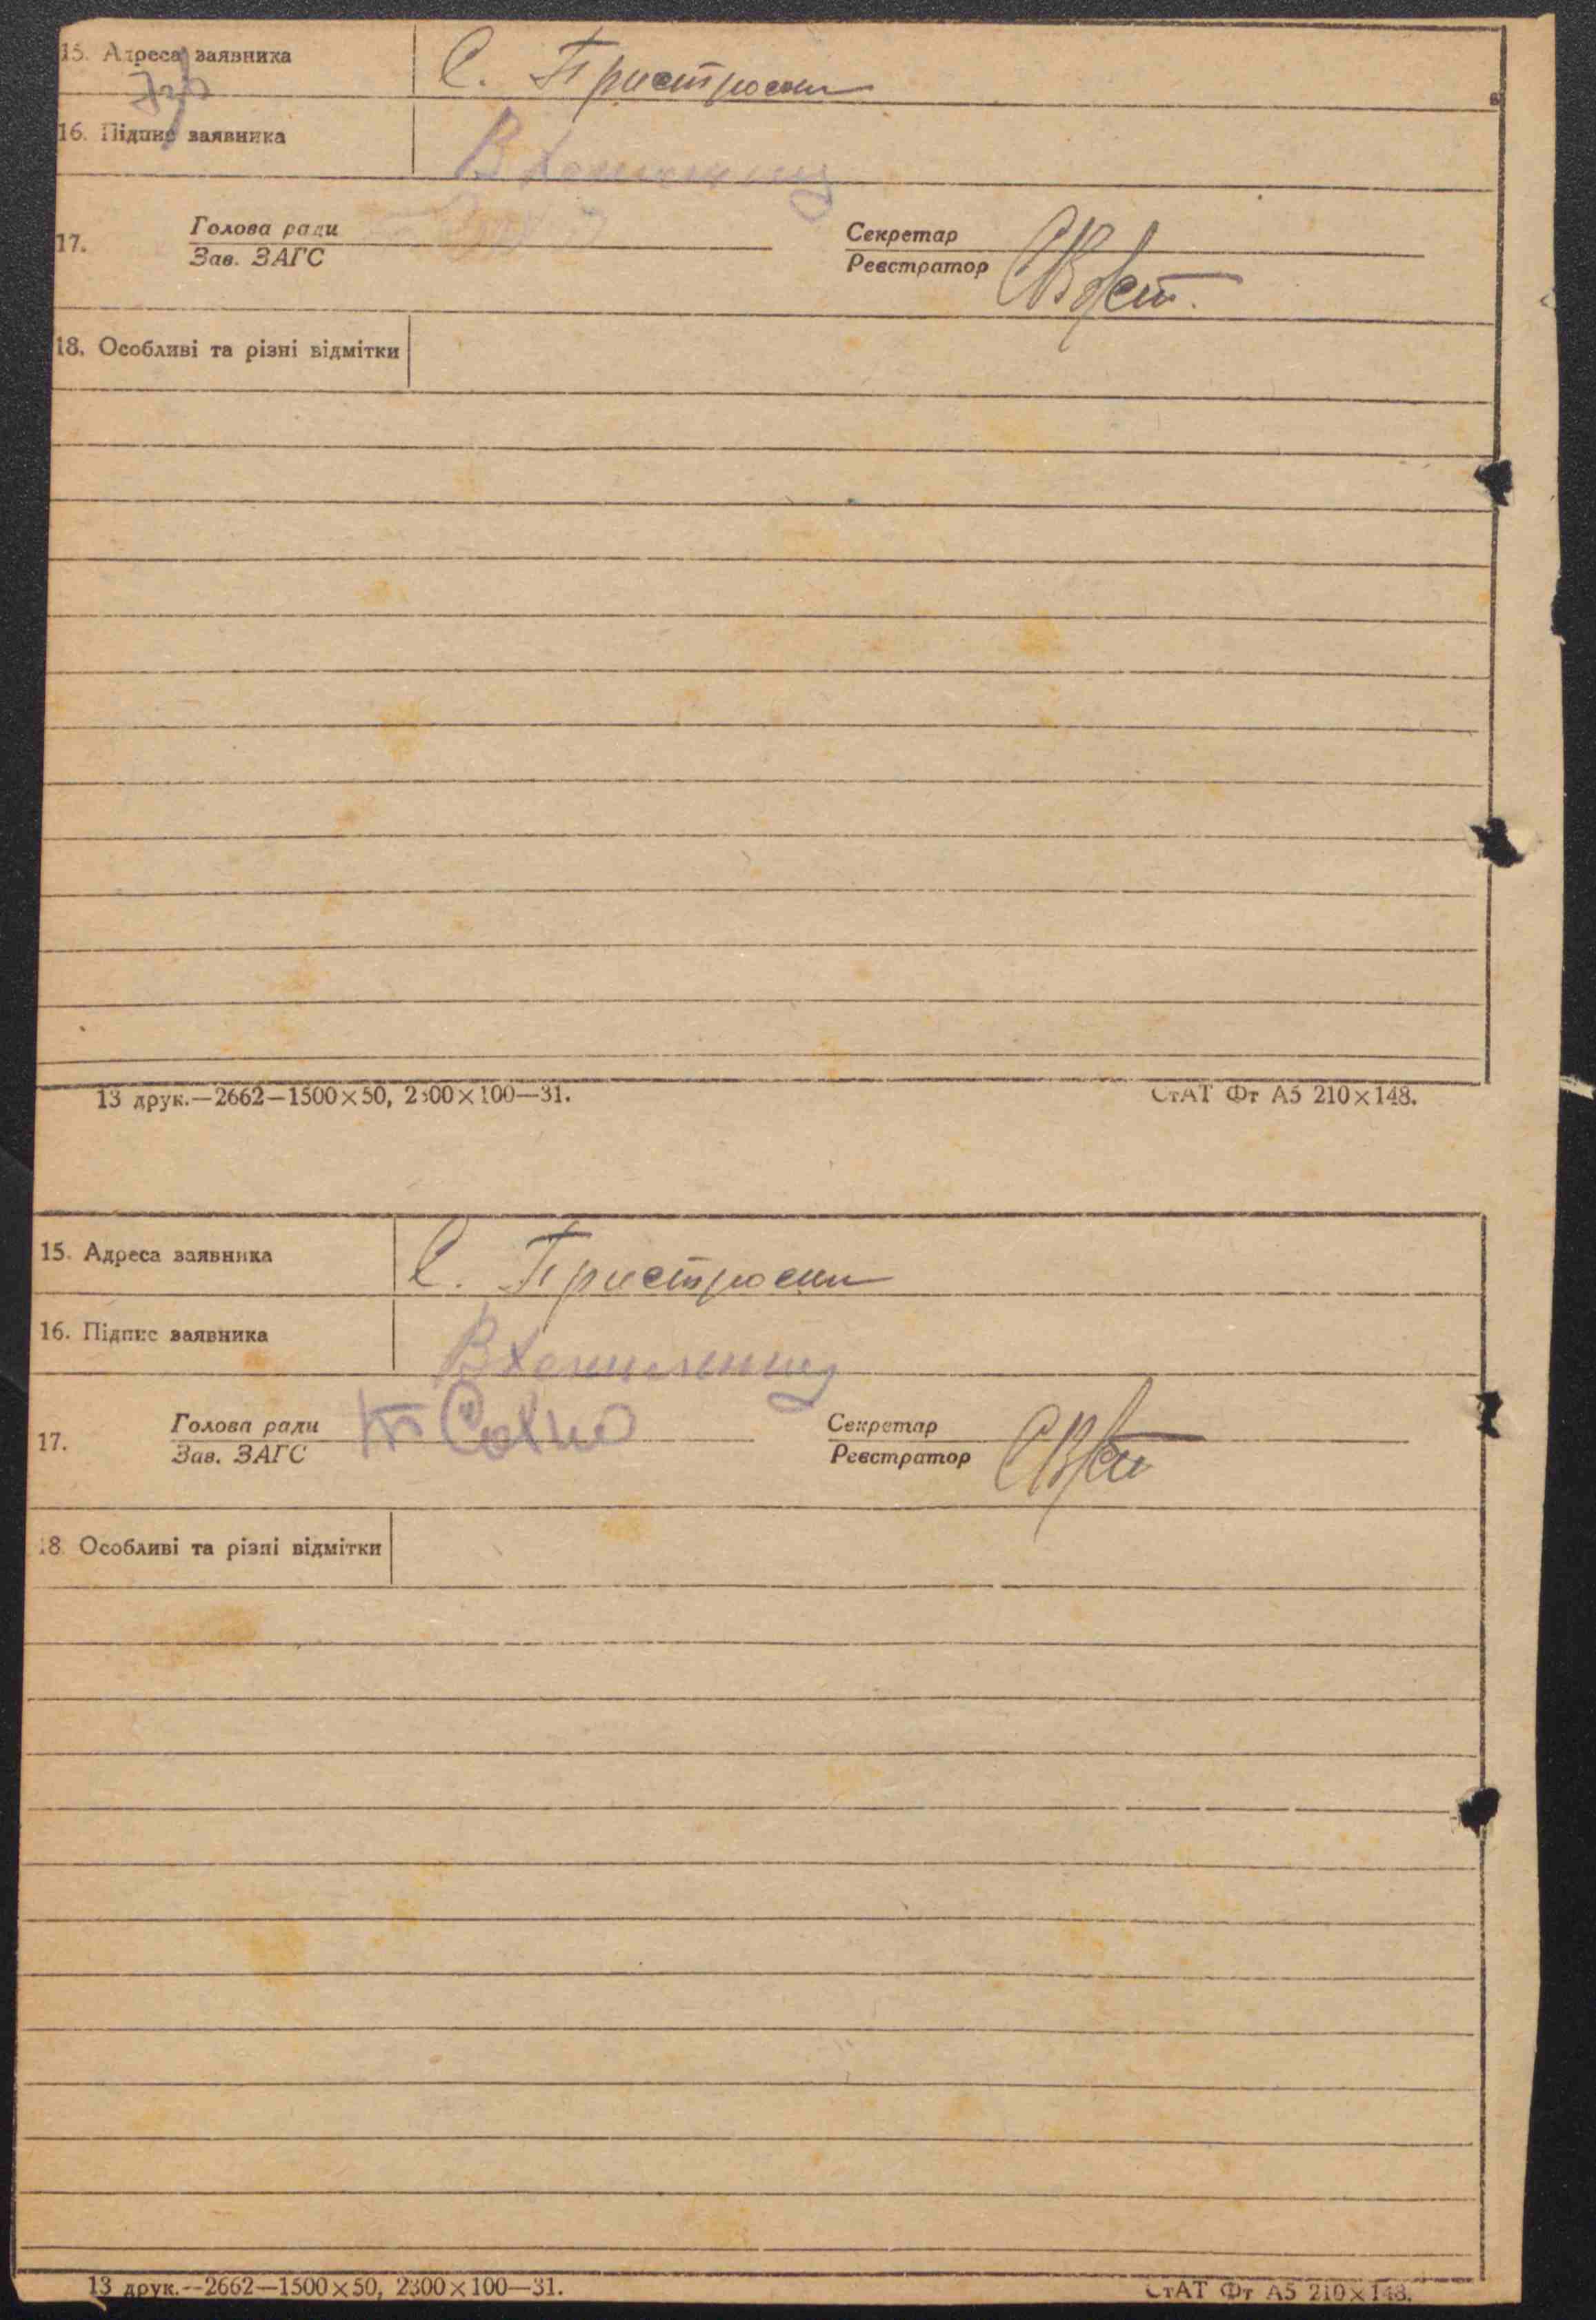 15. Адреса заявника
С. Пристроми
16. Підпис заявника
17. Голова ради
Зав. ЗАГС
Секретар
Реєстратор
18. Особливі та різні відмітки
13 друк.—2662—1500×50, 2300×100—31.
СтАТ Фт А5 210×148.
15. Адреса заявника
С. Пристроми
16. Підпис заявника
17. Голова ради
Зав. ЗАГС
Секретар
Реєстратор
18. Особливі та різні відмітки
13 друк.—2662—1500×50, 2300×100—31.
СтАТ Фт А5 210×148.